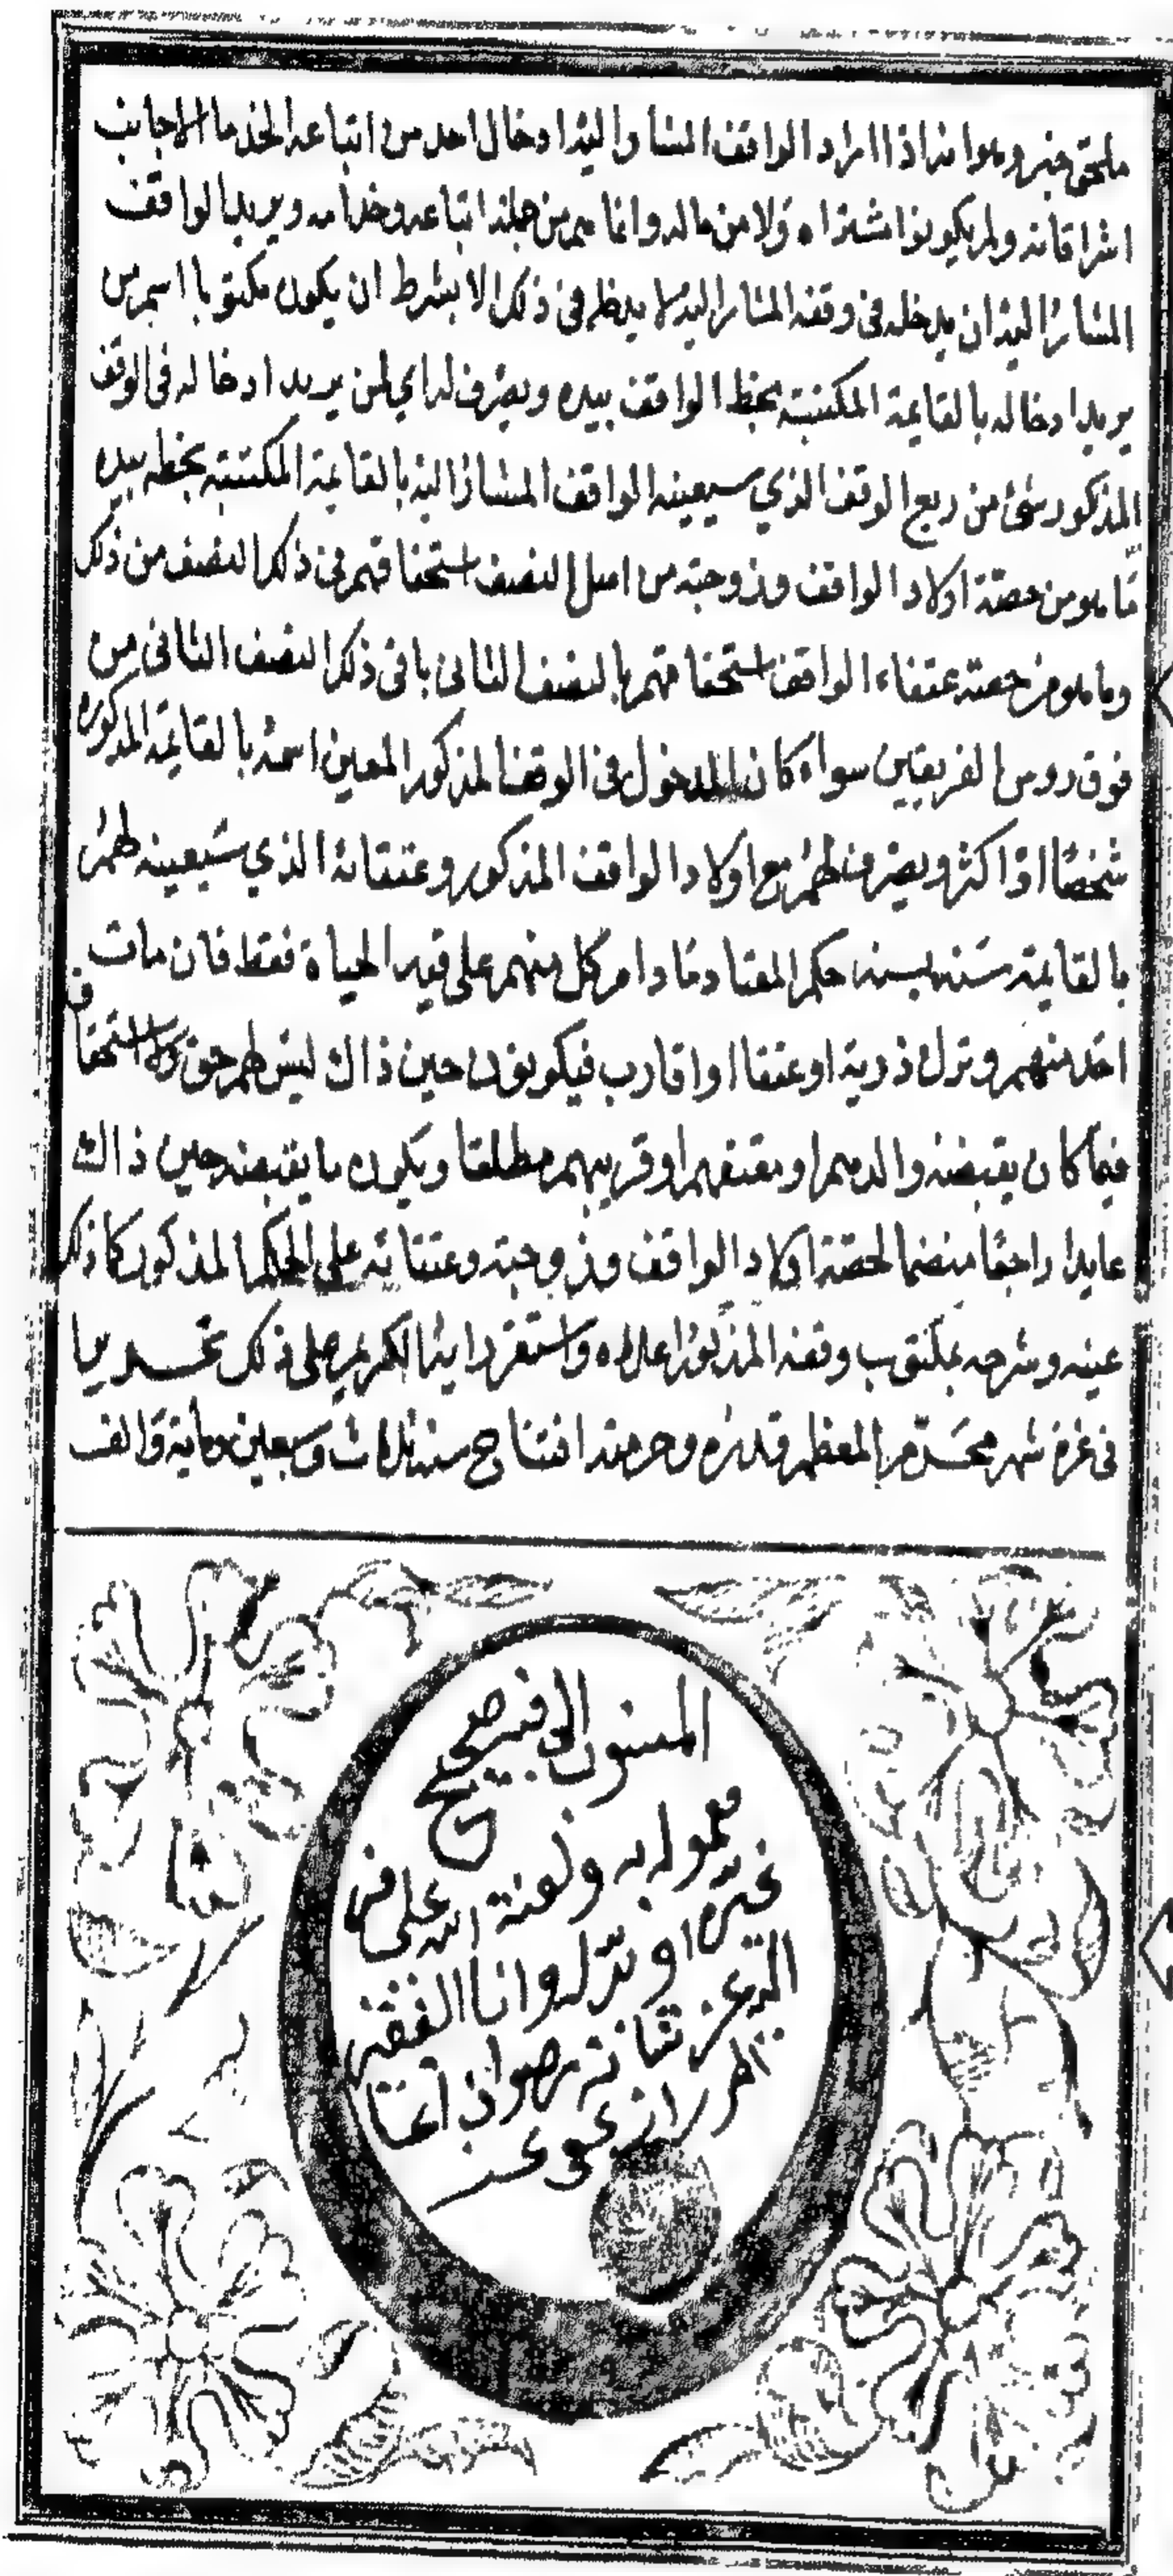 ملحق خير وهو انه اذا اراد الواقف المشار اليه ادخال احد من اتباعه الخدما الاجانب
اشراقاته ولم يكونوا مشتراه ولا من ماله وانما هم من جملة اتباعه وخدامه ويريد الواقف
المشار اليه ان يدخله في وقفه المشار اليه لا يدخل في ذلك الا بشرط ان يكون مكتوبا اسم من
يريد ادخاله بالقايمة المكتتبة بخط الواقف بيده ويصرف له اي لمن يريد ادخاله في الوقف
المذكور شئ من ريع الوقف الذي سيعينه الواقف المشار اليه بالقايمة المكتتبة بخطه بيده
ما هو من حصة اولاد الواقف وزوجته من اصل النصف استحقاقهم في ذلك النصف من ذلك
وما هو من حصة عتقاء الواقف استحقاقهم بالنصف الثانى باقى ذلك النصف الثانى من
فوق روس الفريقين سواء كان المدخول في الوقف المذكور المعين اسمه بالقايمة المذكوره
شخصا او اكثر ويصرف لهم مع اولاد الواقف المذكور وعتقائه الذي سيعينه لهم
بالقايمة سنه بسنه حكم المعتاد ما دام كل منهم على قيد الحياة فقط فان مات
احد منهم وترك ذرية او عتقا او اقارب فيكونون حين ذاك ليس لهم حق ولا استحقاق
فيما كان يقبضه والدهم او معتقهم او قريبهم مطلقا ويكون ما يقبضه حين ذاك
عايدا راجعا منضما لحصة اولاد الواقف وزوجته وعتقائه على الحكم المذكور كما ذلك
عينه وشرحه بمكتوب وقفه المذكور اعلاه واستقر رايه الكريم على ذلك تحريرا
في غرة شهر محرم المعظم قدره وحرمته افتتاح سنة ثلاث وسبعين وماية والف
المنسوب الى فيه صحيح
معمول به ولعنة الله على من
غيره او بدله وانا الفقير
اليه عز شانه رضوان اغا
الرزاز عفى عنه